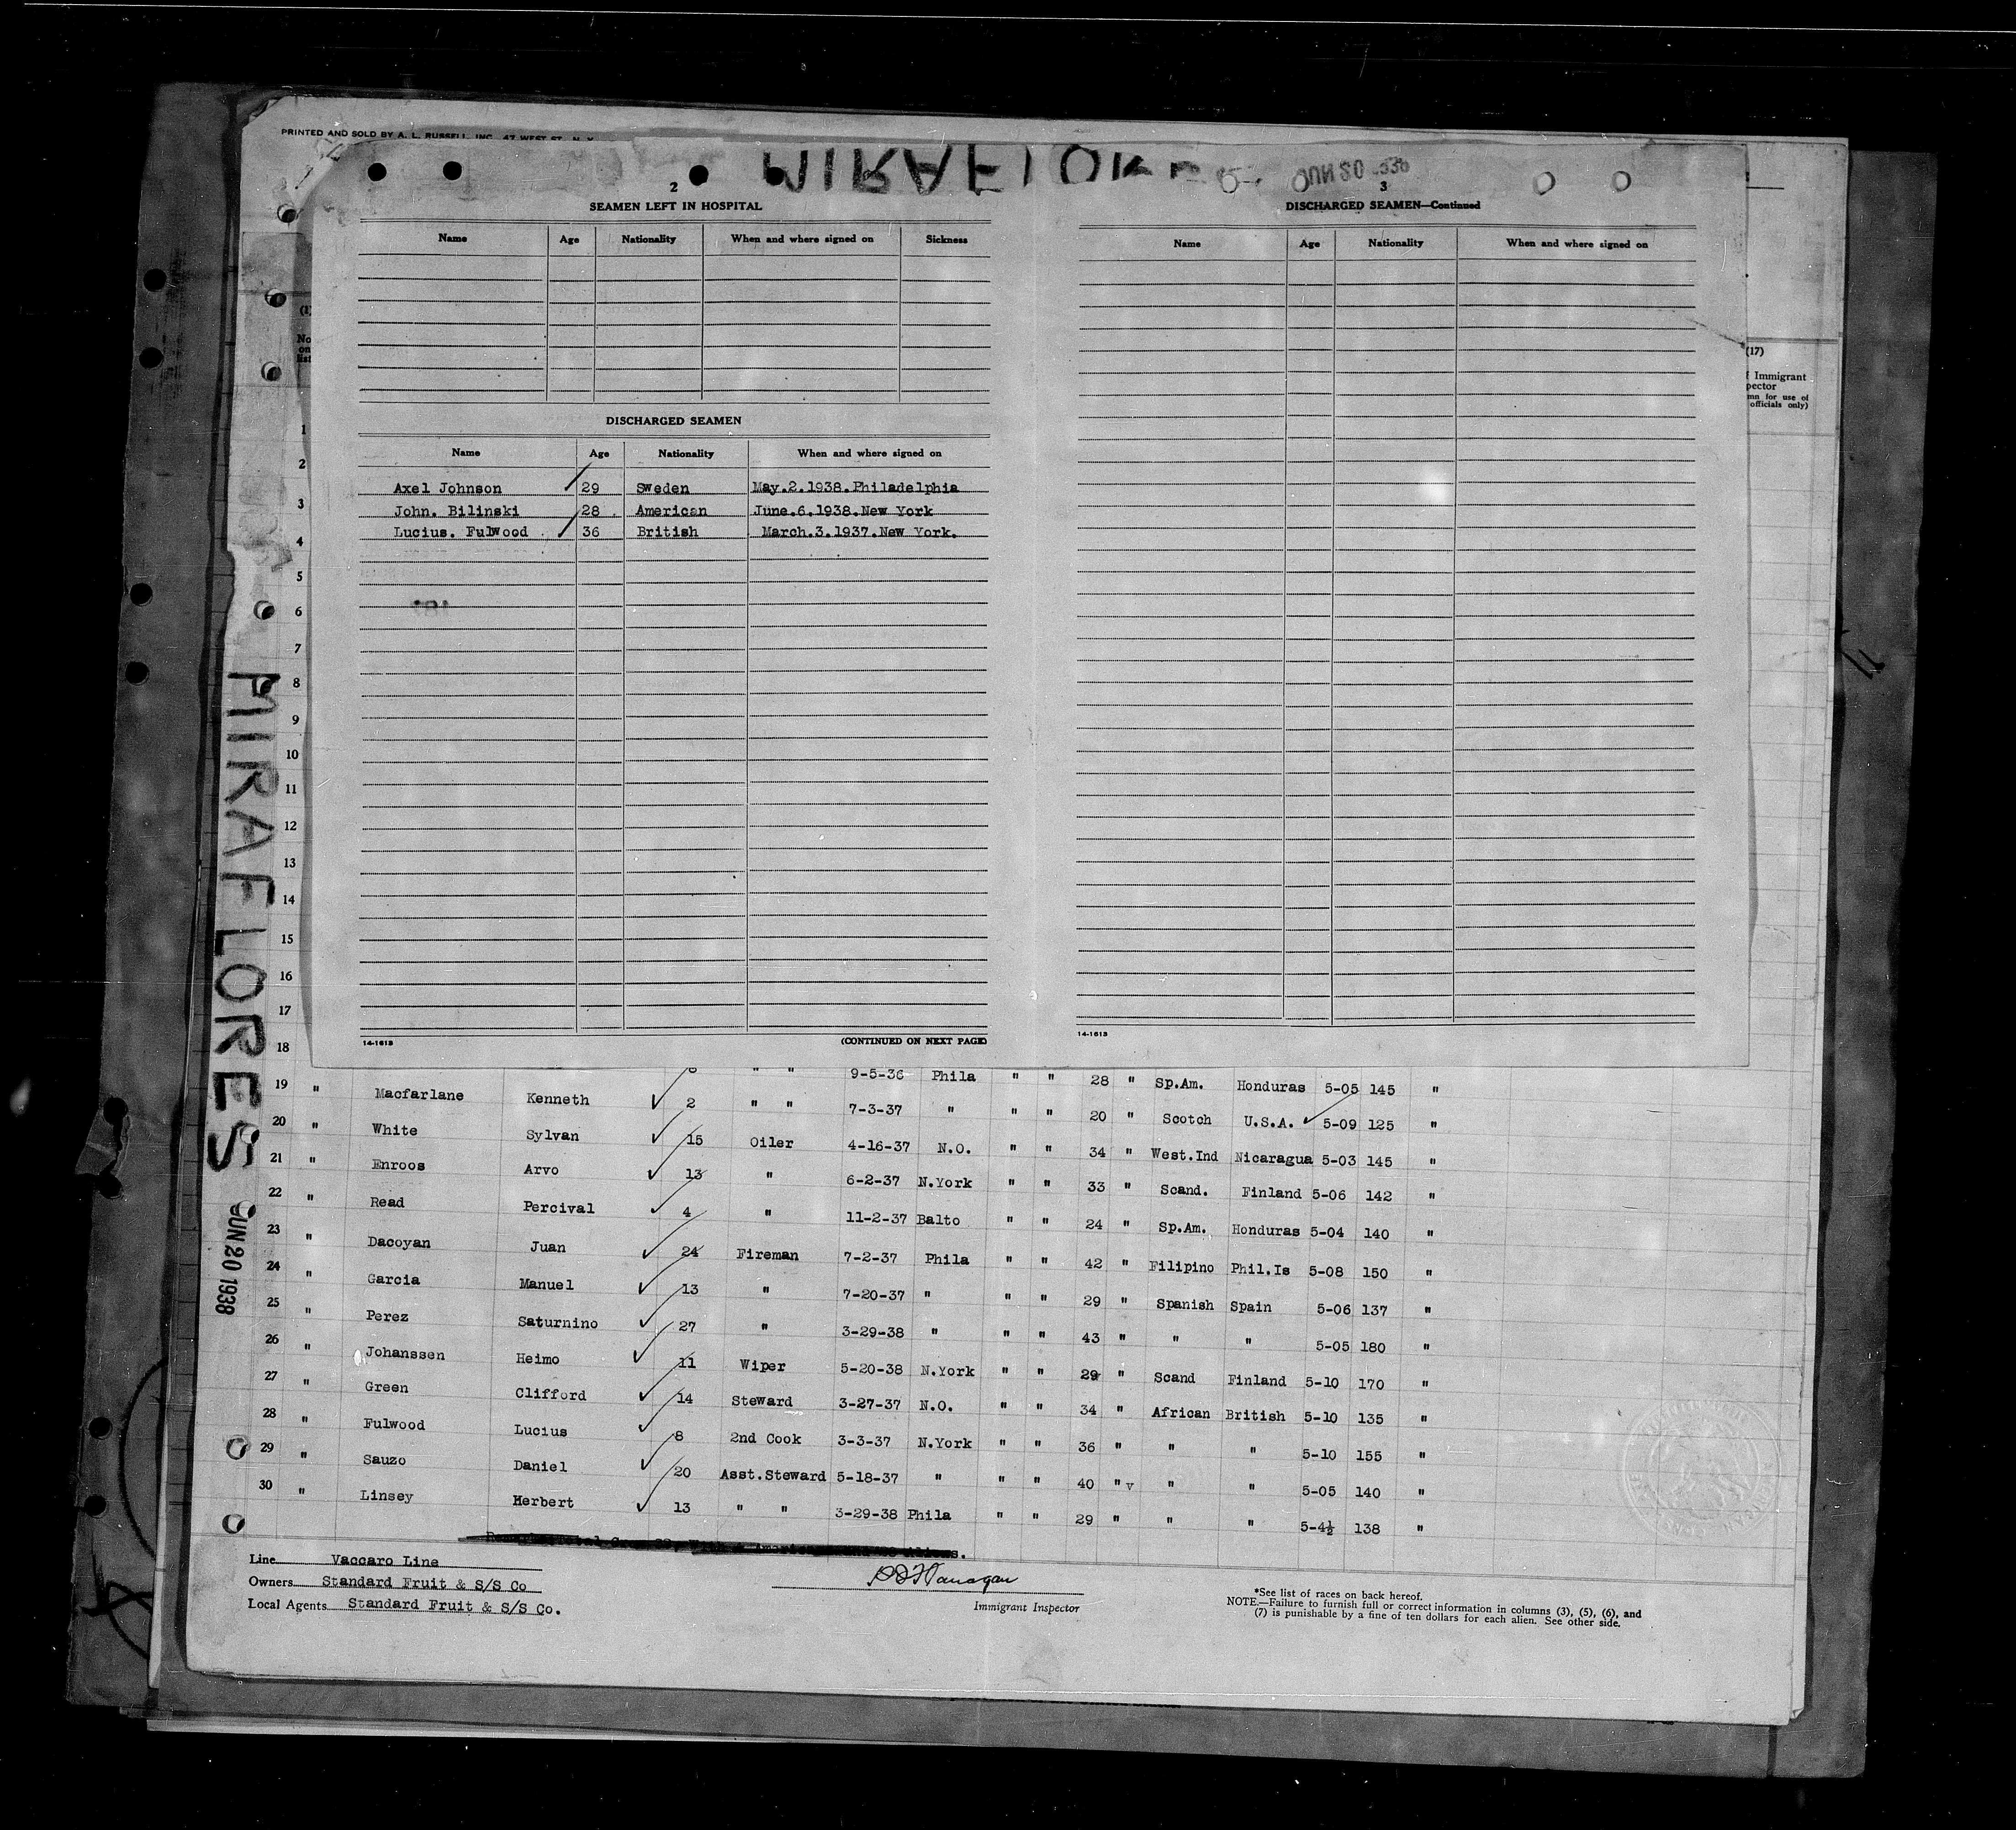 PRINTED AND SOLD BY A. L. RUSSELL, INC., 47 WEST ST., N. Y.
MIRAFLORES
2
SEAMEN LEFT IN HOSPITAL
Name Age Nationality When and where signed on Sickness
DISCHARGED SEAMEN
Name Age Nationality When and where signed on
Axel Johnson 29 Sweden May.2.1938.Philadelphia
John. Bilinski 28 American June.6.1938.New York
Lucius. Fulwood 36 British March.3.1937.New York.
14-1613 (CONTINUED ON NEXT PAGE)
3
DISCHARGED SEAMEN—Continued
Name Age Nationality When and where signed on
14-1613
(1)
No
on
list
(17)
Immigrant
pector
mn for use of
officials only)
1
2
3
4
5
6
7
8
9
10
11
12
13
14
15
16
17
18
MIRAFLORES
JUN 20 1938
" " 9-5-36 Phila " " 28 " Sp.Am. Honduras 5-05 145 "
19 " Macfarlane Kenneth 2 " " 7-3-37 " " " 20 " Scotch U.S.A. 5-09 125 "
20 " White Sylvan 15 Oiler 4-16-37 N.O. " " 34 " West.Ind Nicaragua 5-03 145 "
21 " Enroos Arvo 13 " 6-2-37 N.York " " 33 " Scand. Finland 5-06 142 "
22 " Read Percival 4 " 11-2-37 Balto " " 24 " Sp.Am. Honduras 5-04 140 "
23 " Dacoyan Juan 24 Fireman 7-2-37 Phila " " 42 " Filipino Phil.Is 5-08 150 "
24 " Garcia Manuel 13 " 7-20-37 " " " 29 " Spanish Spain 5-06 137 "
25 " Perez Saturnino 27 " 3-29-38 " " " 43 " " " 5-05 180 "
26 " Johanssen Heimo 11 Wiper 5-20-38 N.York " " 29 " Scand Finland 5-10 170 "
27 " Green Clifford 14 Steward 3-27-37 N.O. " " 34 " African British 5-10 135 "
28 " Fulwood Lucius 8 2nd Cook 3-3-37 N.York " " 36 " " " 5-10 155 "
29 " Sauzo Daniel 20 Asst.Steward 5-18-37 " " " 40 " v " " 5-05 140 "
30 " Linsey Herbert 13 " " 3-29-38 Phila " " 29 " " " 5-4½ 138 "
Line Vaccaro Line
Owners Standard Fruit & S/S Co
Local Agents Standard Fruit & S/S Co.
Immigrant Inspector
*See list of races on back hereof.
NOTE.—Failure to furnish full or correct information in columns (3), (5), (6), and
(7) is punishable by a fine of ten dollars for each alien. See other side.